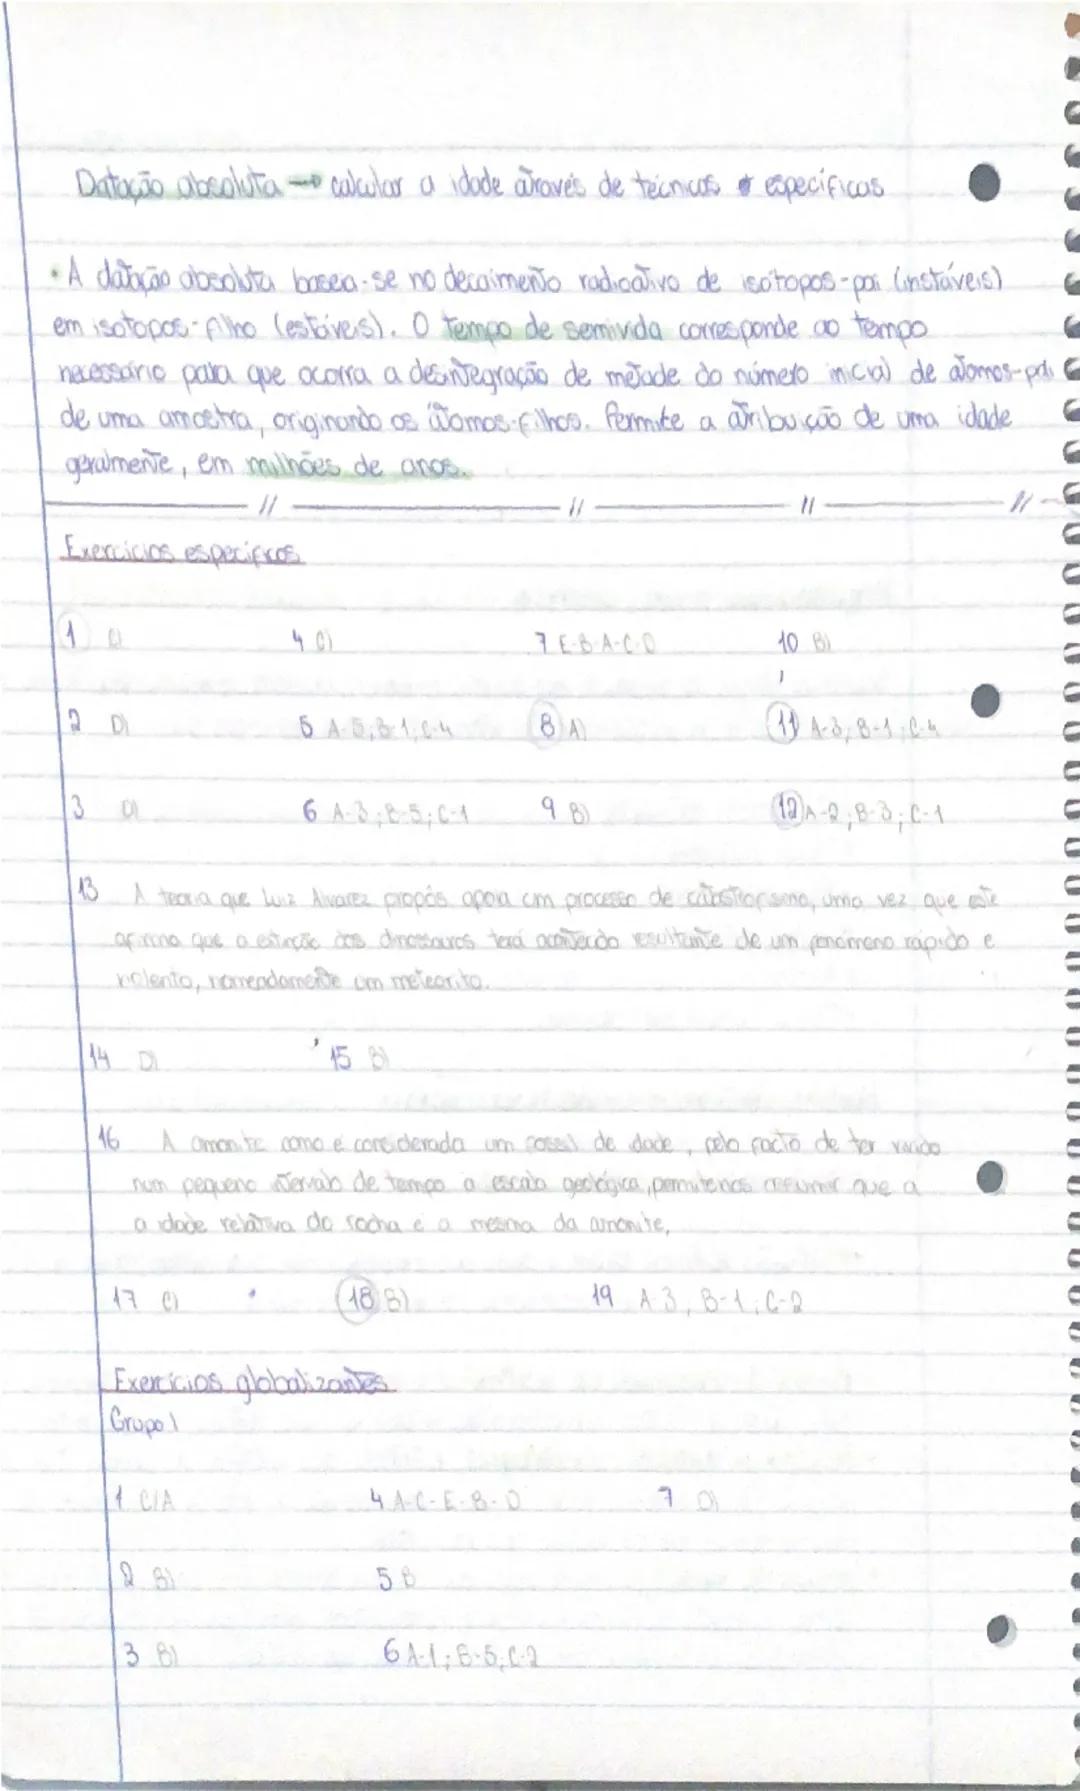 Datação absoluta → calcular a idade através de técnicas específicas
• A datação absoluta baseia-se no decaimento radioativo de isótopos-pai (instáveis)
em isótopos-filho (estáveis). O tempo de semivida corresponde ao tempo
necessário para que ocorra a desintegração de metade do número inicial de átomos-pai
de uma amostra, originando os átomos-filhos. Permite a atribuição de uma idade
geralmente, em milhões de anos.
// // // //
Exercícios específicos
1 C) 4 C) 7 E-B-A-C-D 10 B)
2 D) 5 A-5, B-1, C-4 8 A) 11 A-3, B-1, C-4
3 6 A-3; B-5; C-1 9 B) 12 A-2; B-3; C-1
13 A teoria que Luiz Alvarez propôs apoia um processo de catastrofismo, uma vez que este
afirma que a extinção dos dinossauros terá acontecido resultante de um fenómeno rápido e
violento, nomeadamente um meteorito.
14 D) 15 B)
16 A amonite como é considerada um fóssil de idade, pelo facto de ter vivido
num pequeno intervalo de tempo a escala geológica, permitenos assumir que a
a idade relativa da rocha é a mesma da amonite,
17 C) 18 B) 19 A-3, B-1; C-2
Exercícios globalizantes
Grupo I
1 C/A 4 A-C-E-B-D 7 D)
2 B) 5 B
3 B) 6 A-1; B-5; C-2